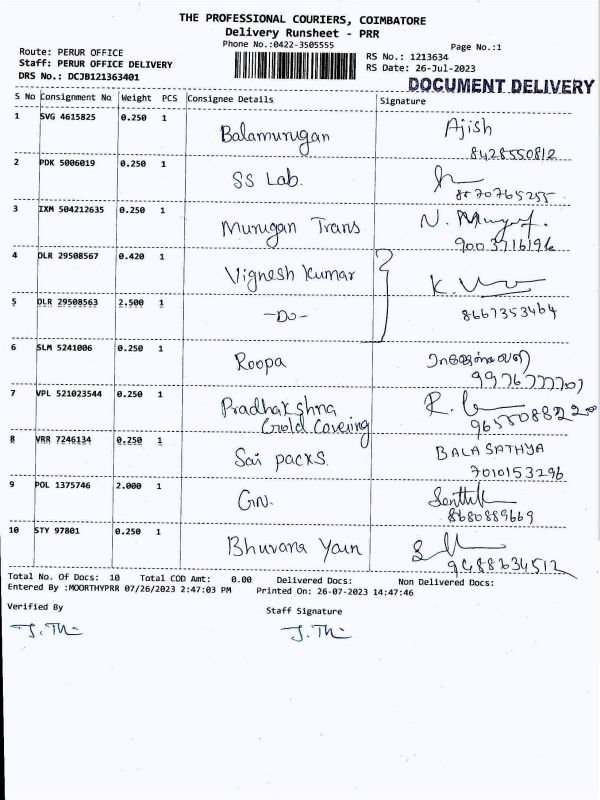 THE PROFESSIONAL COURIERS, COIMBATORE
Delivery Runsheet - PRR
Phone No.:0422-3505555
Page No.:1
Route: PERUR OFFICE
RS No.: 1213634
Staff: PERUR OFFICE DELIVERY
RS Date: 26-Jul-2023
DRS No.: DCJB121363401
DOCUMENT DELIVERY
S No Consignment No Weight PCS Consignee Details Signature
1 SVG 4615825 0.250 1 Balamurugan Ajish
8428550812
2 PDK 5006019 0.250 1 SS Lab.
8870765255
3 IXM 504212635 0.250 1 Murugan Trans N.
9003716196
4 DLR 29508567 0.420 1 Vignesh Kumar K.
5 DLR 29508563 2.500 1 -Do- 8667353464
6 SLM 5241006 0.250 1 Roopa
9976777707
7 VPL 521023544 0.250 1 Pradhakshna R.
Gold Covering
8 VRR 7246134 0.250 1 Sai pacxs. BALA SATHYA
7010153296
9 POL 1375746 2.000 1 GN. Senthil
8680889669
10 STY 97801 0.250 1 Bhuvana Yain
9488634512
Total No. Of Docs: 10 Total COD Amt: 0.00 Delivered Docs: Non Delivered Docs:
Entered By :MOORTHYPRR 07/26/2023 2:47:03 PM Printed On: 26-07-2023 14:47:46
Verified By Staff Signature
J. Thi J. Thi